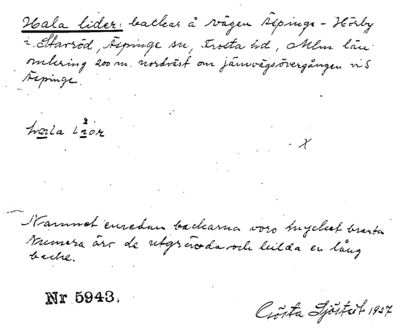 Hala lider: backar å vägen Äspinge - Hörby
i Starröd, Äspinge sn, Frosta hd, Mlm län
omkring 200 m. nordväst om järnvägsövergången vid
Äspinge.
X
Namnet emedan backarna voro mycket branta
Numera äro de utgrävda och bilda en lång
backe.
Nr 5943.
Gösta Sjöstedt 1927